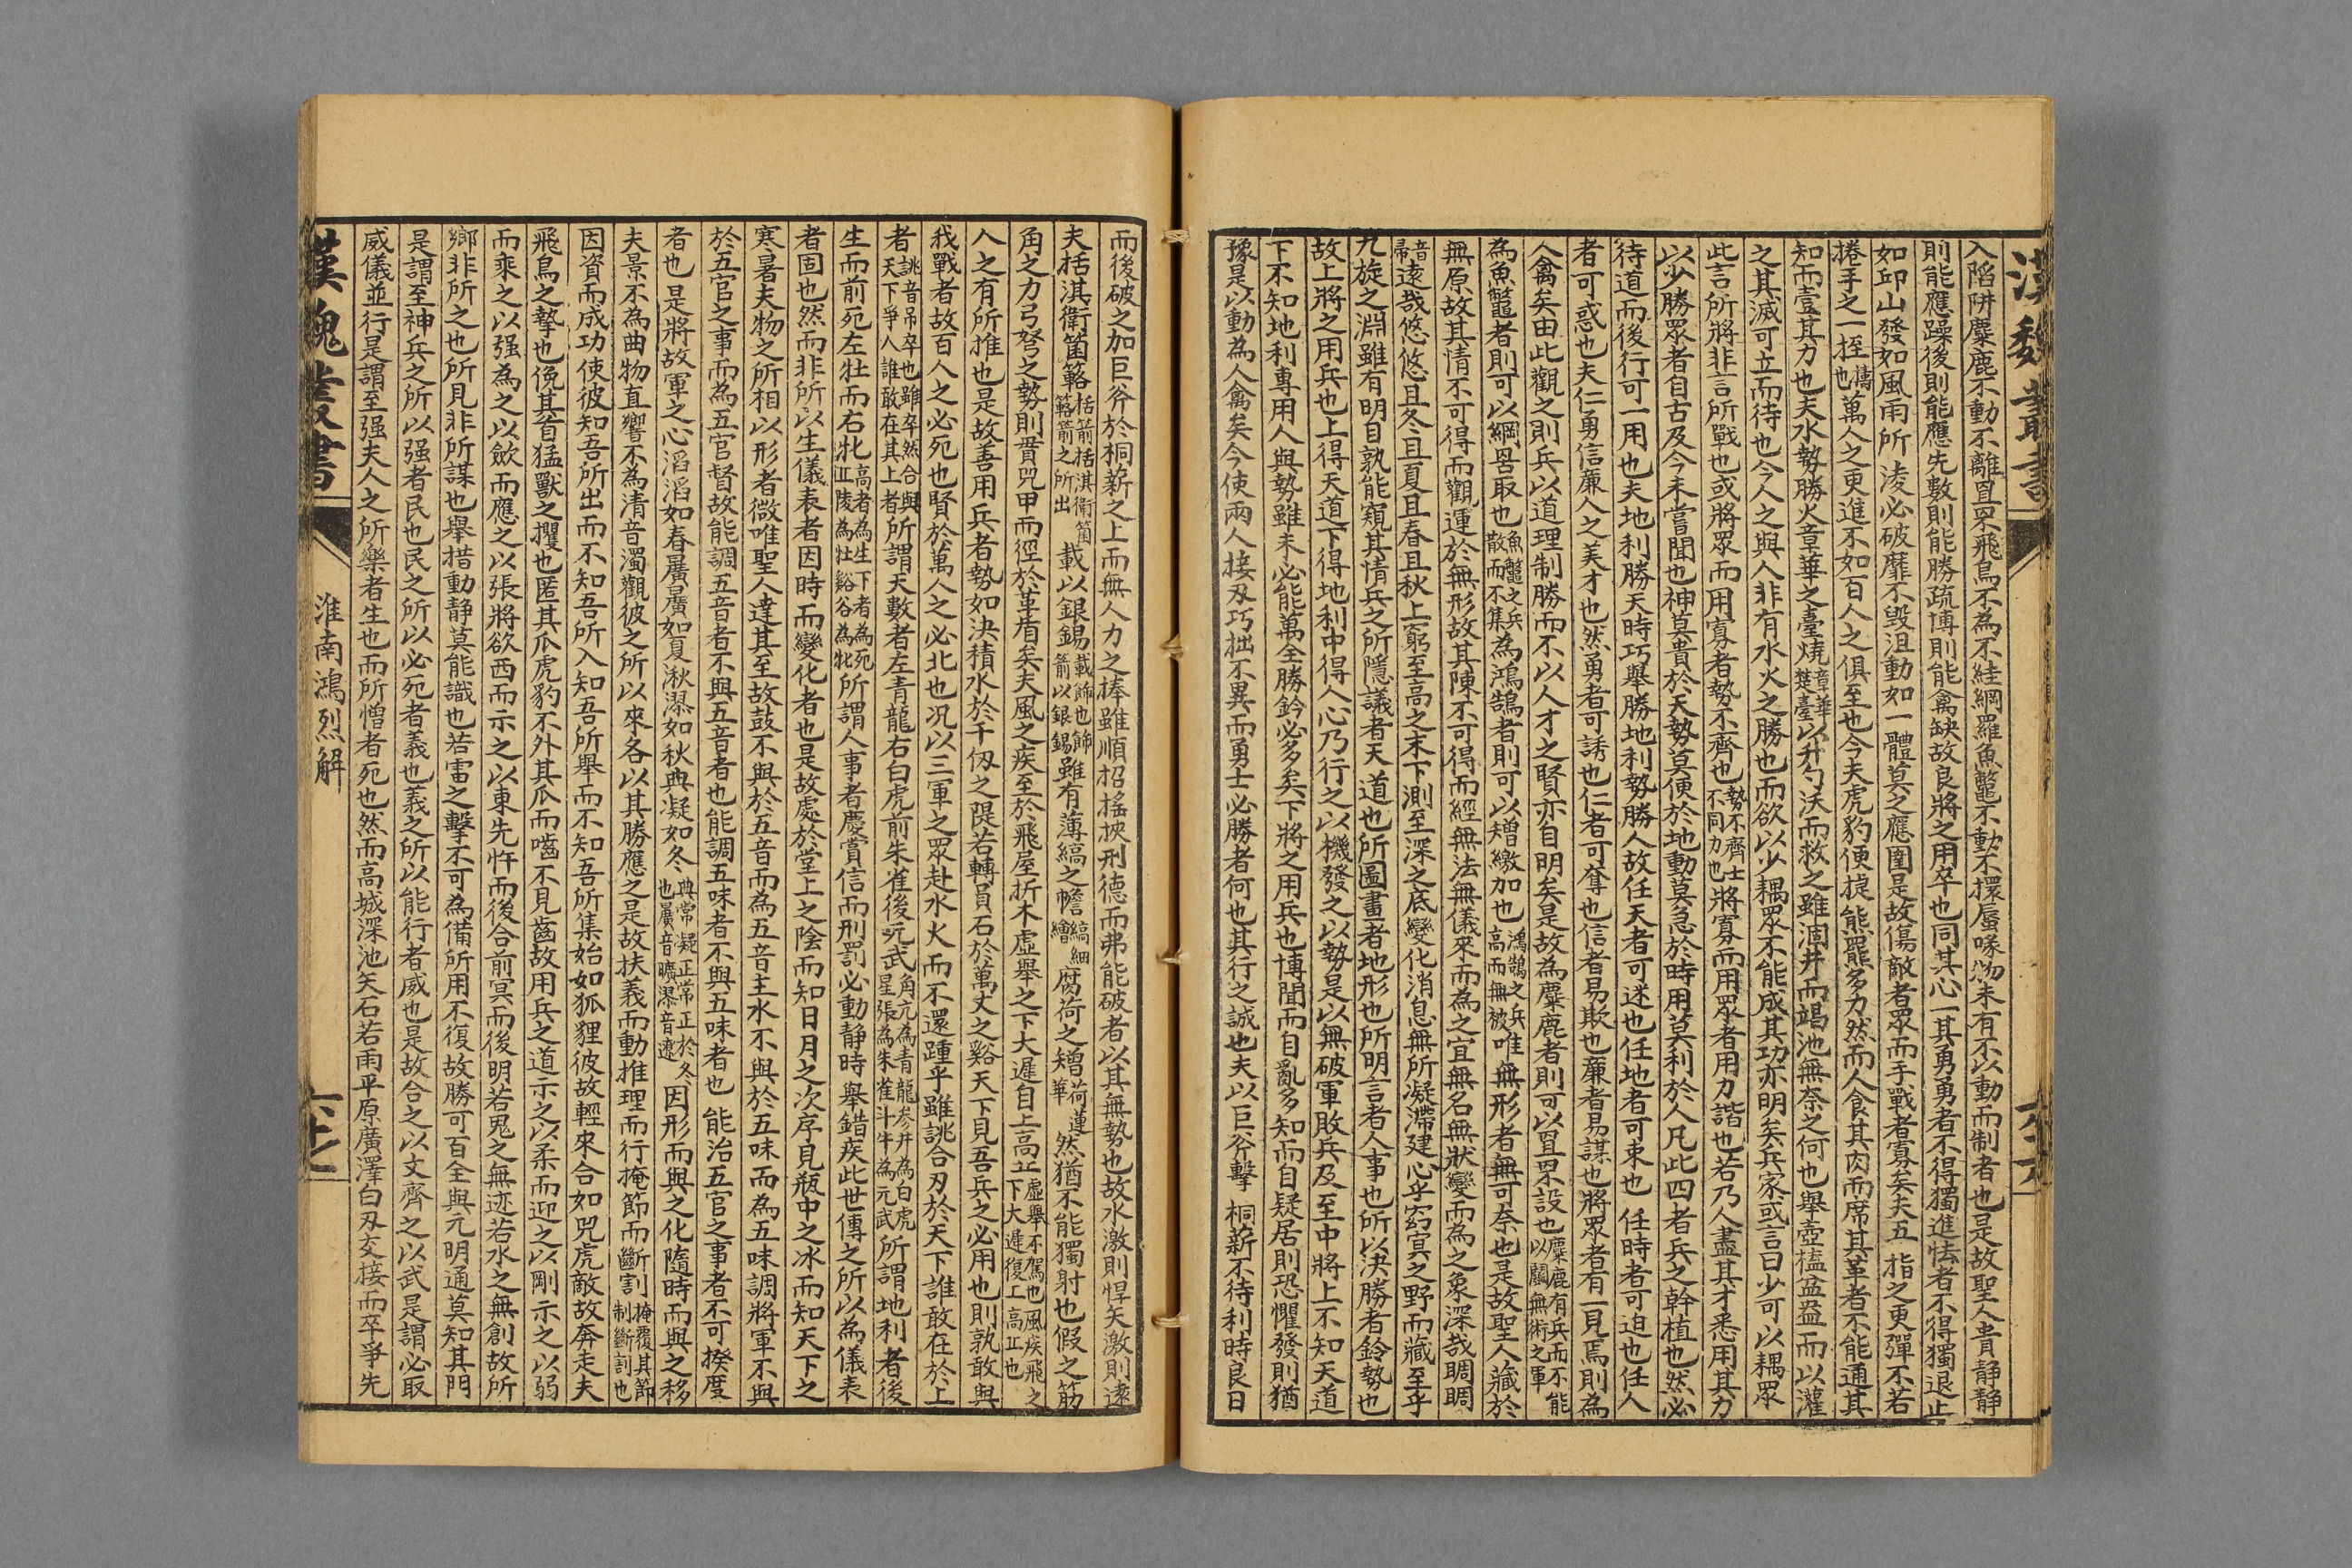 漢魏叢書
入陷阱麋鹿不動不離罝罘飛鳥不為不絓網羅魚鼈不動不擐脣喙物未有不以動而制者也是故聖人貴靜靜
則能應躁後則能應先數則能勝疏博則能禽缺故良將之用卒也同其心一其勇勇者不得獨進怯者不得獨退止
如邱山發如風雨所淩必破靡不毀沮動如一體莫之應圉是故傷敵者眾而手戰者寡矣夫五指之更彈不若
捲手之一挃擣也萬人之更進不如百人之俱至也今夫虎豹便捷熊羆多力然而人食其肉而席其革者不能通其
知而壹其力也夫水勢勝火章華之臺燒章華楚臺以升勺沃而救之雖涸井而竭池無奈之何也舉壺榼盆盎而以灌
之其滅可立而待也今人之與人非有水火之勝也而欲以少耦眾不能成其功亦明矣兵家或言曰少可以耦眾
此言所將非言所戰也或將眾而用寡者勢不齊也勢不齊士不同力也將寡而用眾者用力諧也若乃人盡其才悉用其力
以少勝眾者自古及今未嘗聞也神莫貴於天勢莫便於地動莫急於時用莫利於人凡此四者兵之幹植也然必
待道而後行可一用也夫地利勝天時巧舉勝地利勢勝人故任天者可迷也任地者可束也任時者可迫也任人
者可惑也夫仁勇信廉人之美才也然勇者可誘也仁者可奪也信者易欺也廉者易謀也將眾者有一見焉則為
人禽矣由此觀之則兵以道理制勝而不以人才之賢亦自明矣是故為麋鹿者則可以罝罘設也麋鹿有兵而不能以鬬無術之軍
為魚鼈者則可以網罟取也魚鼈之兵散而不集為鴻鵠者則可以矰繳加也鴻鵠之兵高而無被唯無形者無可奈也是故聖人藏於
無原故其情不可得而觀運於無形故其陳不可得而經無法無儀來而為之宜無名無狀變而為之象深哉睭睭
音帚遠哉悠悠且冬且夏且春且秋上窮至高之末下測至深之底變化消息無所凝滯建心乎窈冥之野而藏至乎
九旋之淵雖有明目孰能窺其情兵之所隱議者天道也所圖畫者地形也所明言者人事也所以決勝者鈐勢也
故上將之用兵也上得天道下得地利中得人心乃行之以機發之以勢是以無破軍敗兵及至中將上不知天道
下不知地利專用人與勢雖未必能萬全勝鈐必多矣下將之用兵也博聞而自亂多知而自疑居則恐懼發則猶
豫是以動為人禽矣今使兩人接刄巧拙不異而勇士必勝者何也其行之誠也夫以巨斧擊桐薪不待利時良日
而後破之加巨斧於桐薪之上而無人力之捧雖順招搖挾刑德而弗能破者以其無勢也故水激則悍矢激則遠
夫栝淇衛箘簬栝箭栝淇衛箘簬箭之所出載以銀錫載飾也飾箭以銀錫雖有薄縞之幨縞細繒腐荷之矰荷蓮華然猶不能獨射也假之筋
角之力弓弩之勢則貫兕甲而徑於革盾矣夫風之疾至於飛屋折木虛舉之下大遲自上高丘虛舉不駕也風疾飛之下大遲復上高丘也
人之有所推也是故善用兵者勢如決積水於千仭之隄若轉員石於萬丈之谿天下見吾兵之必用也則孰敢與
我戰者故百人之必死也賢於萬人之必北也況以三軍之眾赴水火而不還踵乎雖誂合刃於天下誰敢在於上
者誂音吊卒也雖卒然合與天下爭人誰敢在其上者所謂天數者左青龍右白虎前朱雀後元武角亢為青龍參井為白虎星張為朱雀斗牛為元武所謂地利者後
生而前死左牡而右牝高者為生下者為死丘陵為牡谿谷為牝所謂人事者慶賞信而刑罰必動靜時舉錯疾此世傳之所以為儀表
者固也然而非所以生儀表者因時而變化者也是故處於堂上之陰而知日月之次序見瓶中之冰而知天下之
寒暑夫物之所相以形者微唯聖人達其至故鼓不與於五音而為五音主水不與於五味而為五味調將軍不與
於五官之事而為五官督故能調五音者不與五音者也能調五味者不與五味者也能治五官之事者不可揆度
者也是將故軍之心滔滔如春廣廣如夏湫漻如秋典凝如冬典常凝正常正於冬也廣音曠漻音遼因形而與之化隨時而與之移
夫景不為曲物直響不為清音濁觀彼之所以來各以其勝應之是故扶義而動推理而行掩節而斷割掩覆其節制斷割也
因資而成功使彼知吾所出而不知吾所入知吾所舉而不知吾所集始如狐狸彼故輕來合如兕虎敵故奔走夫
飛鳥之摯也俛其首猛獸之攫也匿其爪虎豹不外其爪而噬不見齒故用兵之道示之以柔而迎之以剛示之以弱
而乘之以强為之以歛而應之以張將欲西而示之以東先忤而後合前冥而後明若鬼之無迹若水之無創故所
鄉非所之也所見非所謀也舉措動靜莫能識也若雷之擊不可為備所用不復故勝可百全與元明通莫知其門
是謂至神兵之所以强者民也民之所以必死者義也義之所以能行者威也是故合之以文齊之以武是謂必取
威儀並行是謂至强夫人之所樂者生也而所憎者死也然而高城深池矢石若雨平原廣澤白刄交接而卒爭先
漢魏叢書
淮南鴻烈解